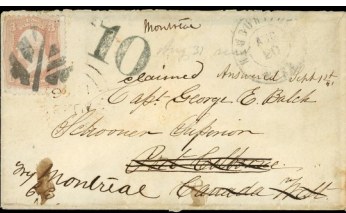 Montréal
10
claimed
Answered Sept 1st
Capt. George E. Balch
Schooner Superior
Port Colborne
Try Montréal Canada West